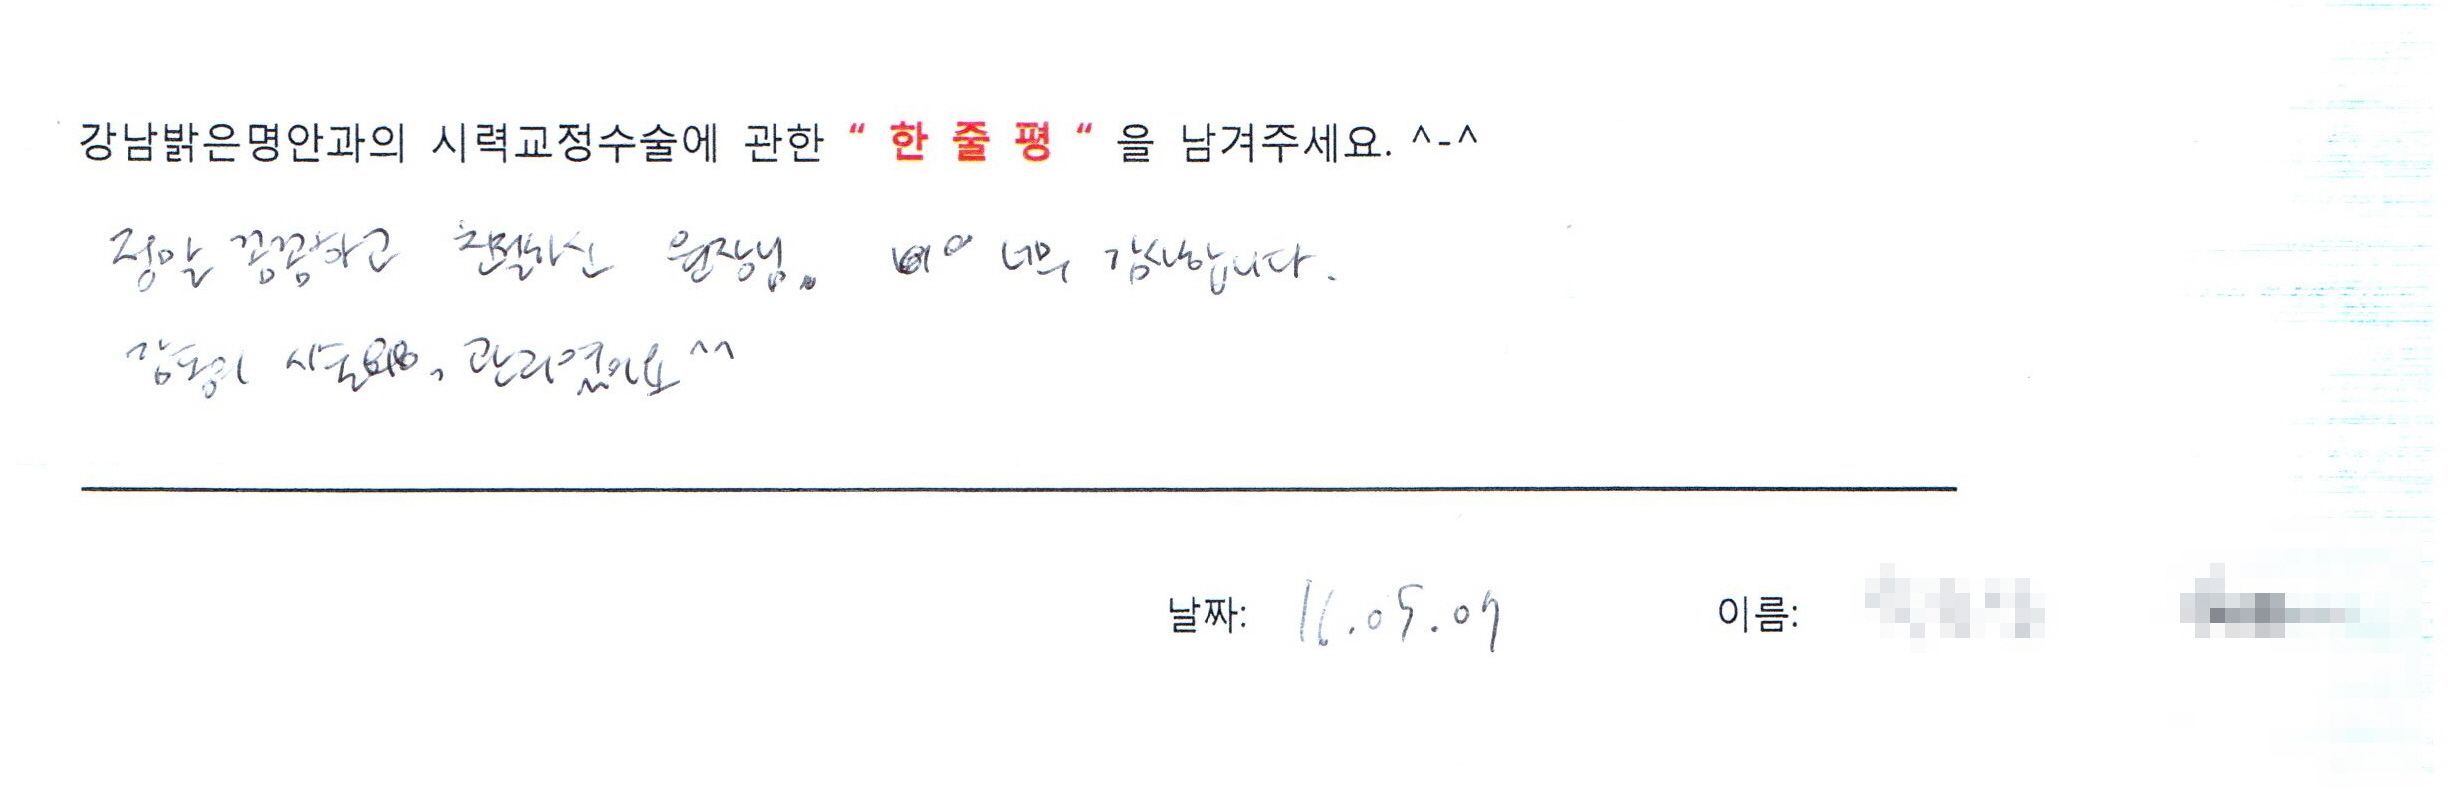 강남밝은명안과의 시력교정수술에 관한 “ 한 줄 평 “ 을 남겨주세요. ^-^
정말 꼼꼼하고 친절하신 원장님. 너무 감사합니다.
감동의 관리였어요 ^^
날짜: 16.05.07 이름: